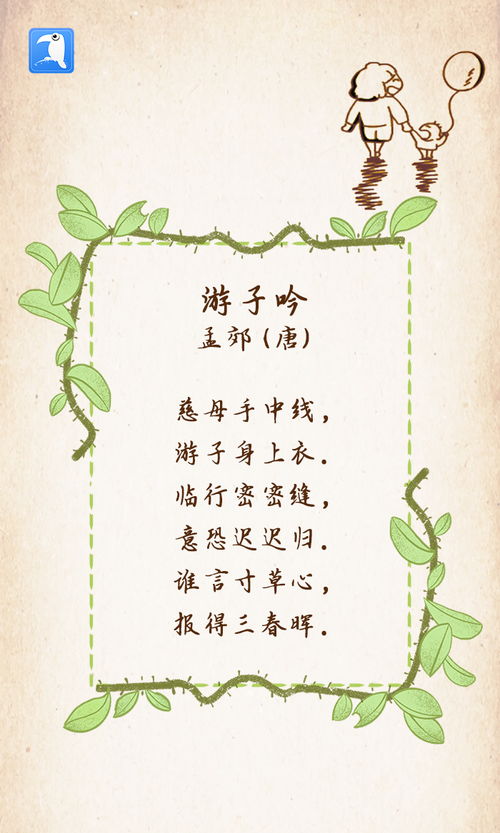 游子吟
孟郊(唐)
慈母手中线,
游子身上衣.
临行密密缝,
意恐迟迟归.
谁言寸草心,
报得三春晖.